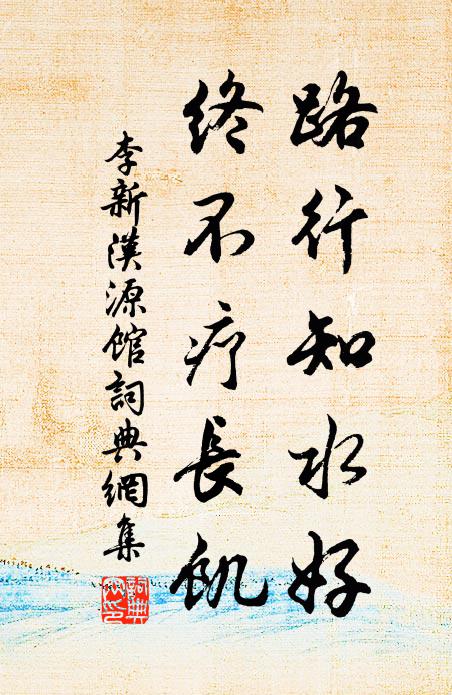 路行知水好
終不疗長飢
李新漢源馆詞典網集